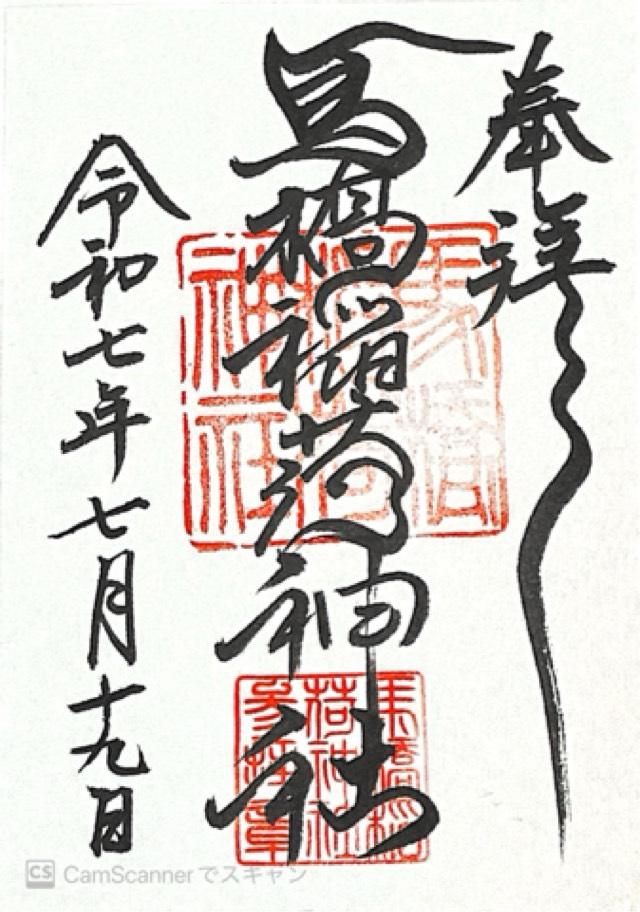 奉拝
馬橋稲荷神社
令和七年七月十九日
馬橋
稲荷
神社
馬橋稲
荷神社
参拝章
CS CamScannerでスキャン